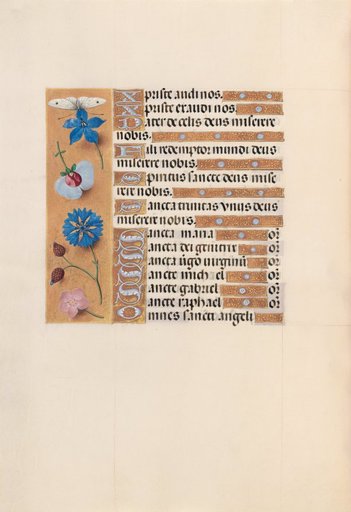 Xpriste audi nos.
Xpriste exaudi nos.
Pater de celis deus miserere
nobis.
Fili redemptor mundi deus
miserere nobis.
Spiritus sancte deus mise
rere nobis.
Sancta trinitas vnus deus
miserere nobis.
Sancta maria or
Sancta dei genitrix or
Sancta virgo virginū or
Sancte michael or
Sancte gabriel or
Sancte raphael or
Omnes sancti angeli